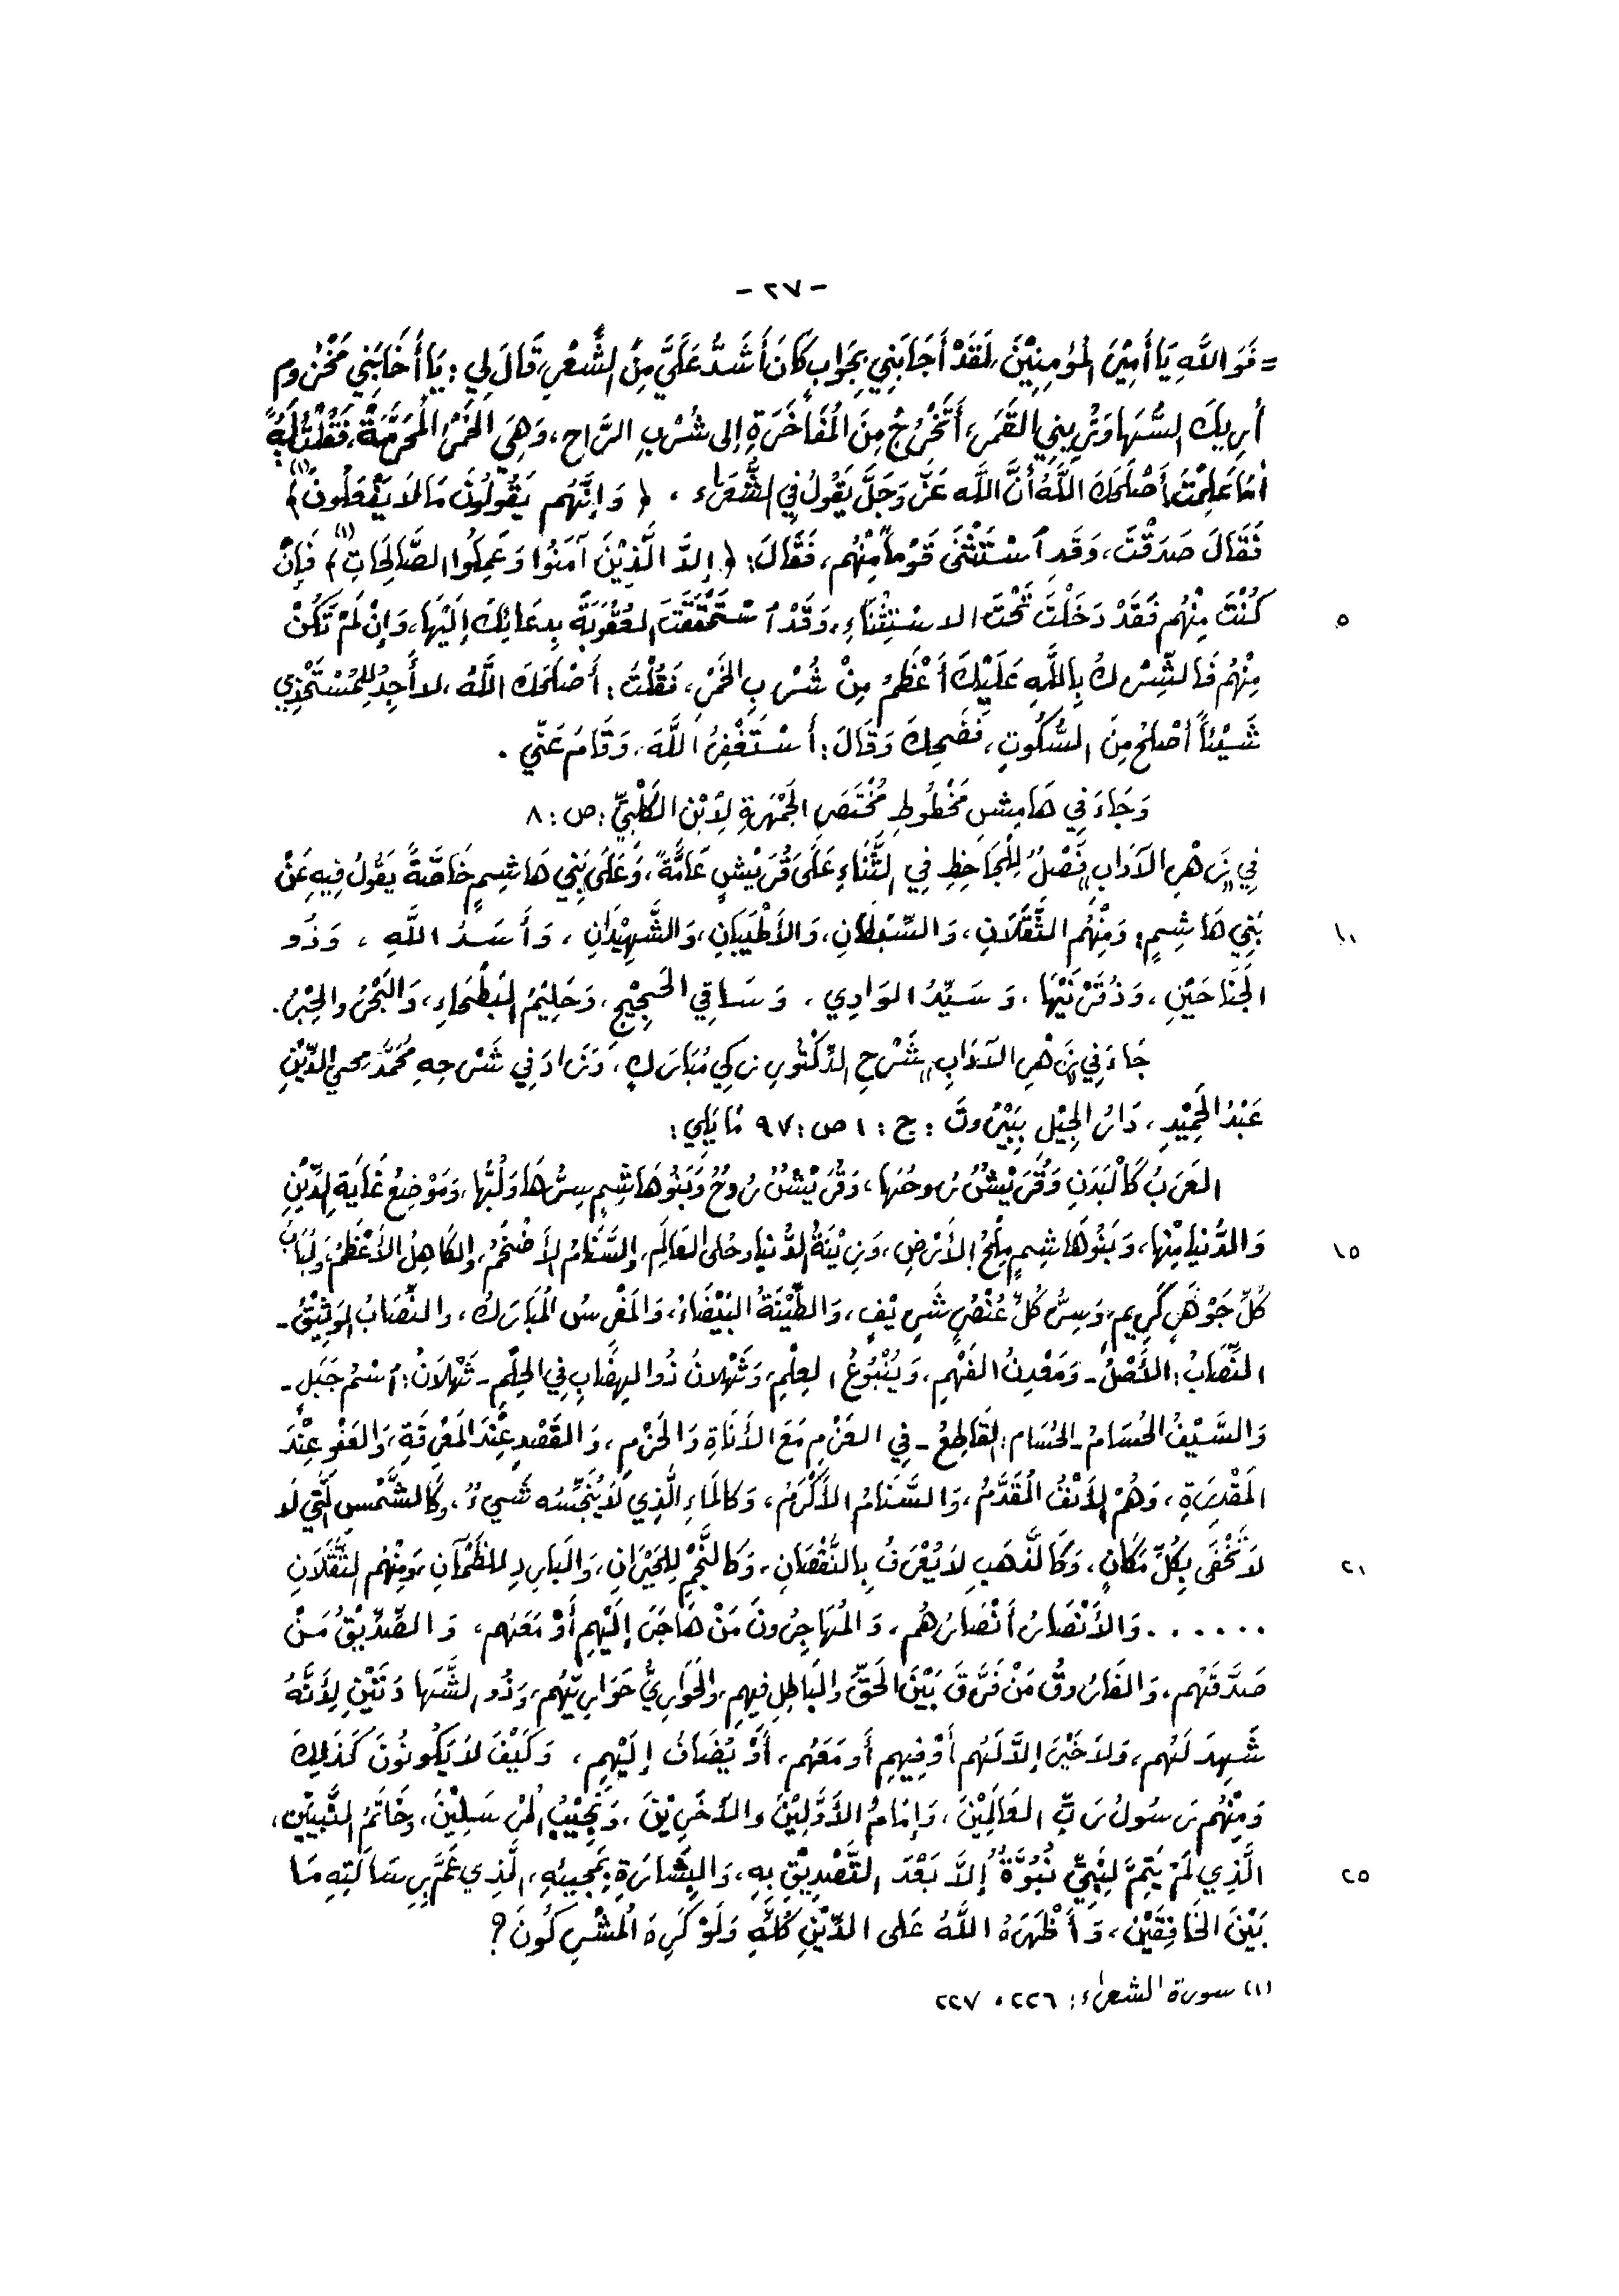 - ٢٧ -
= فَوَاللَّهِ يَا أَمِيْرَ المُؤمِنِيْنَ، لَقَدْ أَجَابَنِي بِجَوابٍ كَانَ أَشَدَّ عَلَيَّ مِنَ الشِّعْرِ، قَالَ لِي : يَا أَخَا بَنِي مَخْزُومٍ
أُرِيكَ السُّهَا وَتُرِينِي القَمَرَ، أَتَخْرُجُ مِنَ المُفَاخَرَةِ إلى شُرْبِ الرَّاحِ، وَهِيَ الخَمْرُ المُحَرَّمَةُ، فَقُلْتُ لَهُ
أَمَا عَلِمْتَ أَصْلَحَكَ اللَّهُ أَنَّ اللَّه عَزَّ وَجَلَّ يَقُولُ فِي الشُّعَرَاءِ ، ﴿ وَإِنَّهُم يَقُولُونَ مَا لاَ يَفْعَلُونَ﴾ (١)
فَقَالَ صَدَقْتَ، وَقَدِ ٱسْتَثْنَى قَوْماً مِنْهُم، فَقَالَ: ﴿ إلاَّ الَّذِيْنَ آمَنُوا وَعَمِلُوا الصَّالِحَاتِ (١)﴾ فَإنْ
٥ كُنْتَ مِنْهُم فَقَدْ دَخَلْتَ تَحْتَ الاسْتِثْنَاءِ، وَقَدْ ٱسْتَحْقَقْتَ العُقُوبَةَ بِدعَائِكَ إلَيْهَا، وَإنْ لَمْ تَكُنْ
مِنْهُم فَالشِّرْكُ بِاللَّهِ عَلَيْكَ أعْظَمُ مِنْ شُرْبِ الخَمْرِ، فَقُلْتُ : أَصْلَحَكَ اللَّهُ، لا أَجِدُ لِلمُسْتَخْذِي
شَيْئاً أَصْلَحَ مِنَ السُّكُوتِ، فَضَحِكَ وَقَالَ : أَسْتَغْفِرُ اللَّهَ، وَقَامَ عَنِّي .
وَجَاءَ فِي هَامِشِ مَخْطُوطِ مُخْتَصَرِ الجَمْهَرَةِ لِابْنِ الكَلْبِيِّ : ص : ٨
فِي „زَهْرِ الآدَابِ“ فَصْلٌ لِلْجَاحِظِ فِي الثَّنَاءِ عَلَى قُرَيْشٍ عَامَّةً، وَعَلَى بَنِي هَاشِمٍ خَاصَّةً يَقُولُ فِيهِ عَنْ
١٠ بَنِي هَاشِمٍ : وَمِنْهُم الثَّقَلَانِ، وَالسِّبْطَانِ، وَالأَطْيَبَانِ، وَالشَّهِيْدَانِ ، وَأَسَدُ اللَّهِ ، وَذُو
الجَنَاحَيْنِ ، وَذُو قَرْنَيْهَا ، وَسَيِّدُ الوَادِي ، وَسَاقِي الحَجِيْجِ، وَحَلِيْمُ البَطْحَاءِ، وَالبَحْرُ والحِبْرُ .
جَاءَ فِي „زَهْرِ الآدَابِ“ شَرْحِ الدِّكْتُورِ زكي مُبَارَك ، وَزَادَ فِي شَرْحِهِ مُحَمَّد محيي الدِّيْنِ
عَبْدُ الحَمِيْدِ ، دَارُ الجِيْلِ بِبَيْرُوتَ : ج : ١ ص : ٩٧ مَا يَلِي :
العَرَبُ كَالْبَدَنِ وَقُرَيْشٌ رُوحُهَا، وَقُرَيْشٌ رُوحٌ وَبَنُو هَاشِمٍ سِرُّهَا وَلُبُّهَا، وَمَوْضِعُ غَايَةِ الدِّيْنِ
١٥ وَالدُّنْيَا مِنْهَا، وَبَنُو هَاشِمٍ مِلْحُ الأَرْضِ، وَزِيْنَةُ الدُّنْيَا وحُلى العَالَمِ، والسَّنَامُ الأَضْخَمُ، والكَاهِلُ الأَعْظَمُ، ولُبَابُ
كُلِّ جَوْهَرٍ كَرِيمٍ، وَسِرُّ كُلِّ عُنْصُرٍ شَرِيْفٍ، وَالطِّيْنَةُ البَيْضَاءُ، وَالمَغْرِسُ المُبَارَكُ، والنِّصَابُ الوَثِيْقُ -
النِّصَابُ : الأَصْلُ - وَمَعْدِنُ الفَهْمِ، وَيُنْبُوعُ العِلْمِ، وَثَهْلانُ ذُو الهِضَابِ فِي الحِلْمِ - ثَهْلانُ : ٱسْمُ جَبَلٍ -
وَالسَّيْفُ الحُسَامُ - الحُسَام : القَاطِعُ - فِي العَزْمِ مَعَ الأَنَاةِ وَالحَزْمِ، وَالقَصْدِ عِنْدَ المَعْرِفَةِ، وَالعَفْوِ عِنْدَ
المَقْدِرَةِ ، وَهُمْ الأَنْفُ المُقَدَّمُ ، وَالسَّنَامُ الأَكْرَمُ ، وَكالمَاءِ الَّذِي لَا يُنَجِّسُه شَيءٌ ، وكَالشَّمْسِ الَّتِي لَا
٢١ لاَ تَخْفَى بِكُلِّ مَكَانٍ ، وَكَالذَّهَبِ لاَ يُعْرَفُ بِالنُّقْصَانِ، وَكَالنَّجْمِ لِلحَيْرَانِ، وَالبَارِدِ لِلظَمْآنِ، وَمِنْهُم الثَّقَلَانِ
. . . . . . وَالأَنْصَارُ أَنْصَارُهُم ، وَالمُهَاجِرُونَ مَنْ هَاجَرَ إلَيْهِم أَوْ مَعَهُم ، وَالصِّدِّيْقُ مَنْ
صَدَّقَهُم ، وَالفَارُوقُ مَنْ فَرَّقَ بَيْنَ الحَقِّ والبَاطِلِ فِيهِم، والحَوَارِيُّ حَوَارِيُّهُم، وَذُو الشَّهَادَتَيْنِ لِأَنَّهُ
شَهِدَ لَهُم، وَلاَ خَيْرَ إلاَّ لَهُم أَوْ فِيهِم أَو مَعَهُم ، أَوْ يُضَافُ إلَيْهِم ، وَكَيْفَ لاَ يَكُونُونَ كَذَلِكَ
وَمِنْهُم رَسُولُ رَبِّ العَالَمِيْنَ ، وَإِمَامُ الأَوَّلِيْنَ والآخَرِيْنَ ، وَنَجِيْبُ المُرْسَلِيْنَ، وخَاتَمُ النَّبِيِّيْنَ،
٢٥ الَّذِي لَمْ يَتِمَّ لِنَبِيٍّ نُبُوَّةٌ إلاَّ بَعْدَ التَّصْدِيْقِ بِهِ، وَالبِشَارَةِ بِمَجِيئِهِ، الَّذِي عَمَّ بِرِسَالَتِهِ مَا
بَيْنَ الخَافِقَيْنِ ، وَأَظْهَرَهُ اللَّهُ عَلى الدِّيْنِ كُلِّهِ وَلَوْ كَرِهَ المُشْرِكُونَ ؟
(١) سورة الشعراء : ٢٢٦ ، ٢٢٧